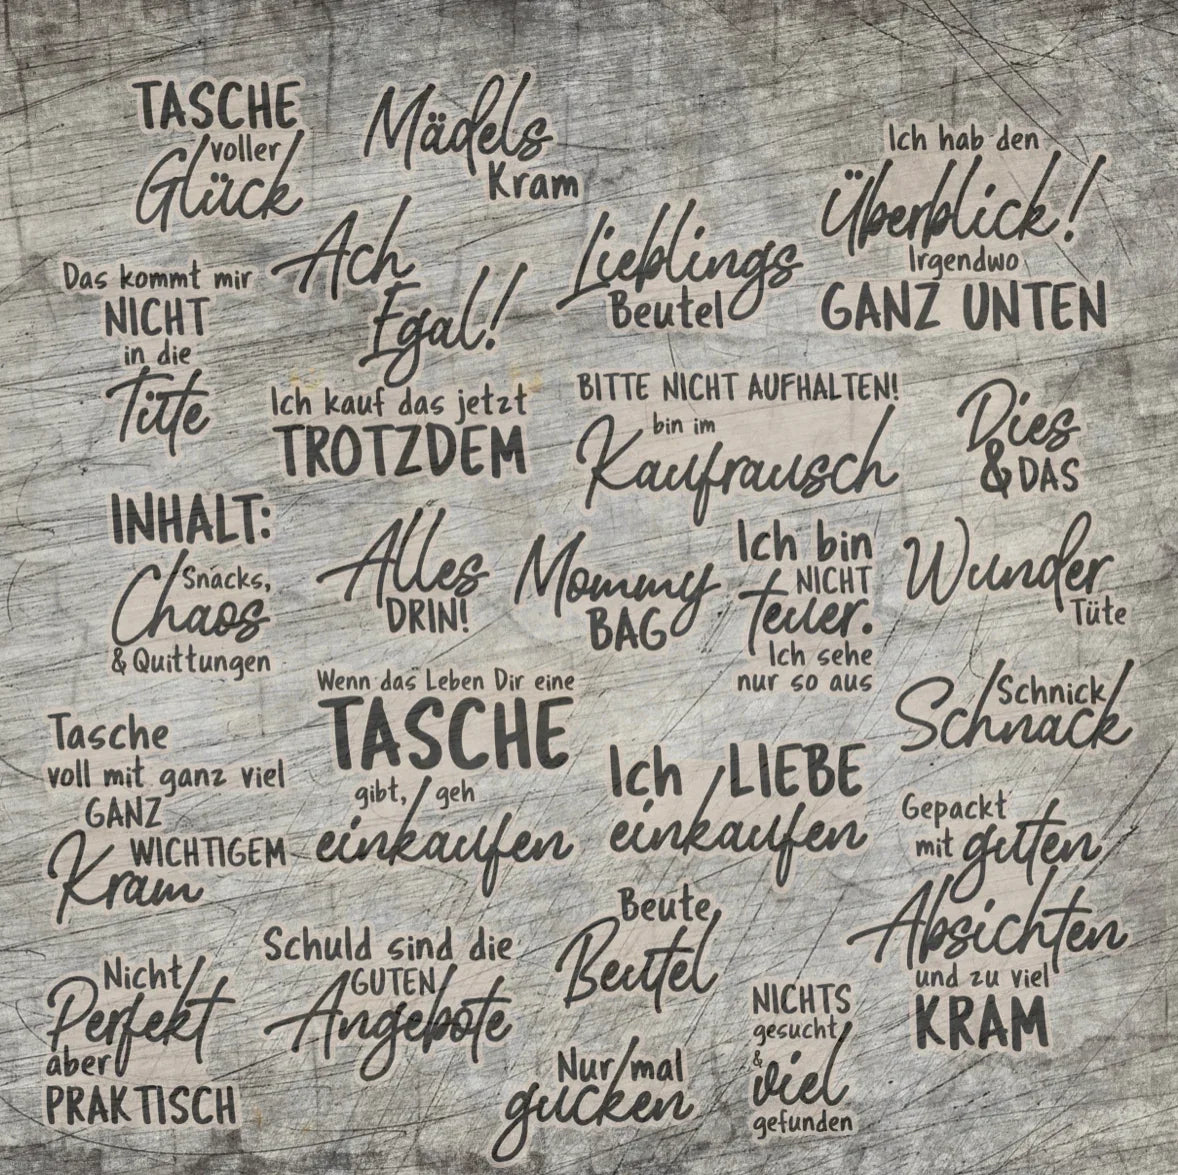 TASCHE
voller
Glück
Mädels
Kram
Ich hab den
Überblick!
Irgendwo
GANZ UNTEN
Das kommt mir
NICHT
in die
Tüte
Ach
Egal!
Lieblings
Beutel
Ich kauf das jetzt
TROTZDEM
BITTE NICHT AUFHALTEN!
bin im
Kaufrausch
Dies
& DAS
INHALT:
Snacks,
Chaos
& Quittungen
Alles
DRIN!
Mommy
BAG
Ich bin
NICHT
teuer.
Ich sehe
nur so aus
Wunder
Tüte
Tasche
voll mit ganz viel
GANZ
WICHTIGEM
Kram
Wenn das Leben Dir eine
TASCHE
gibt, geh
einkaufen
Ich LIEBE
einkaufen
Schnick
Schnack
Gepackt
mit guten
Absichten
und zu viel
KRAM
Nicht
Perfekt
aber
PRAKTISCH
Schuld sind die
GUTEN
Angebote
Beute
Beutel
Nur mal
gucken
NICHTS
gesucht
&
viel
gefunden